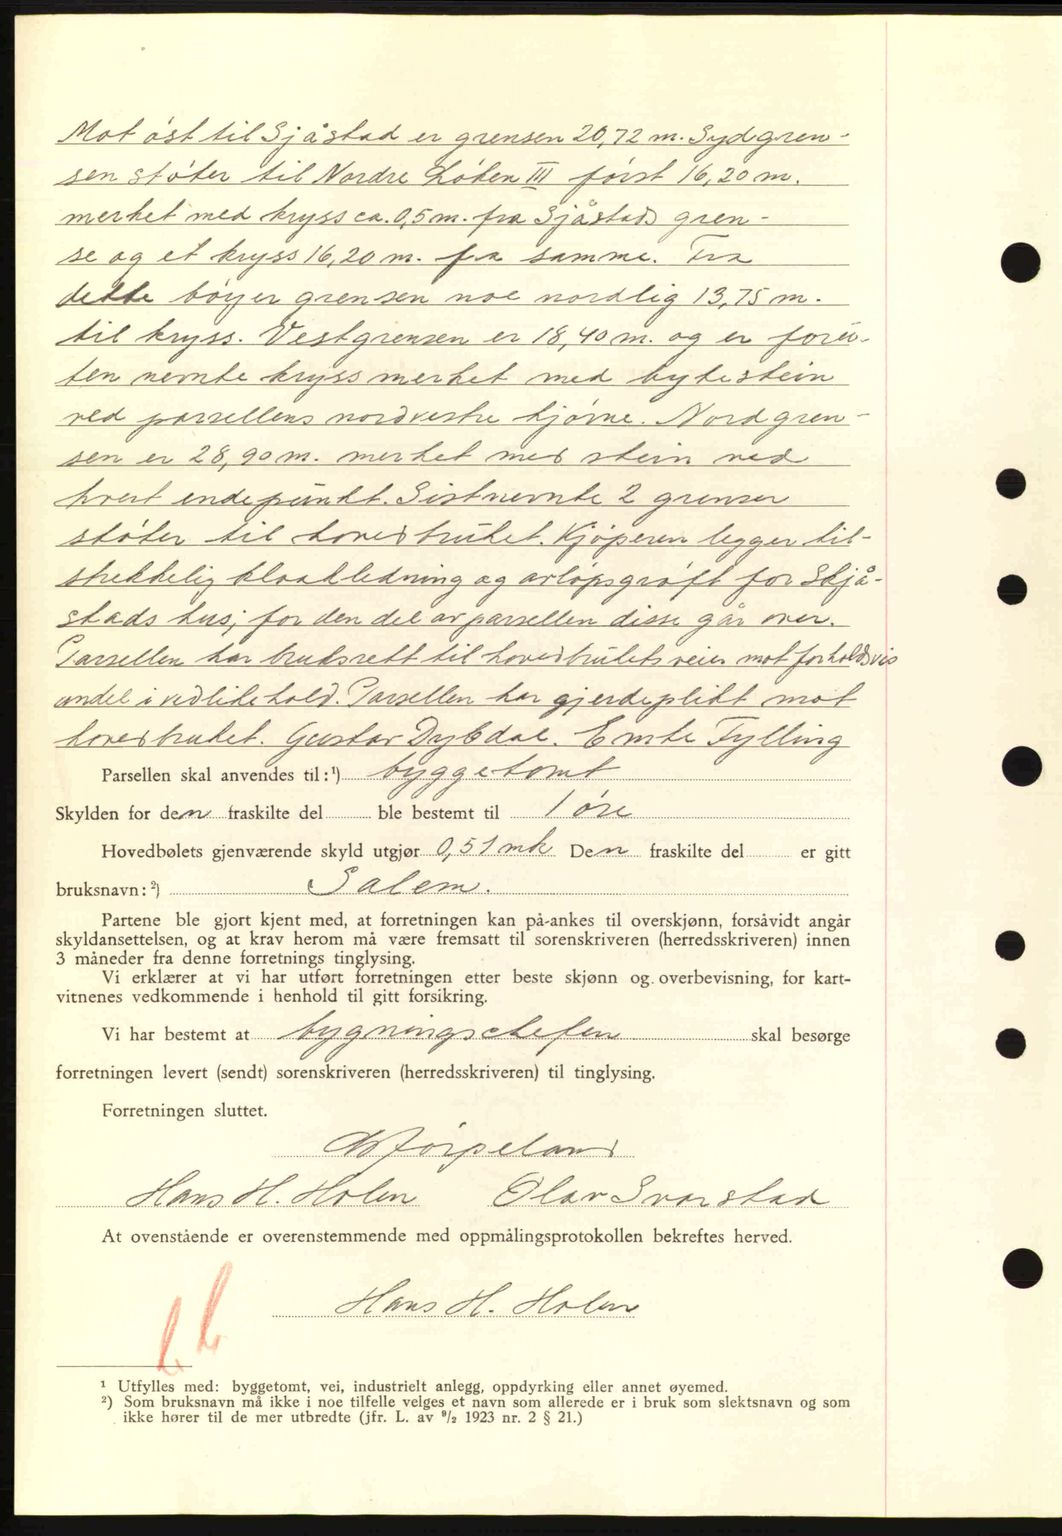 Mot øst til Sjåstad er grensen 20,72 m. Sydgren-
sen støter til Nordre Løten III først 16,20 m.
merket med kryss ca. 0,5 m. fra Sjåstads gren-
se og et kryss 16,20 m. fra samme. Fra
dette bøyer grensen noe nordlig 13,75 m.
til kryss. Vestgrensen er 18,40 m. og er foru-
ten nevnte kryss merket med bytestein
ved parsellens nordvestre hjørne. Nordgren-
sen er 28,90 m. merket med stein ved
hvert endepunkt. Sistnevnte 2 grenser
støter til hovedbruket. Kjøperen legger til-
strekkelig kloakkledning og avløpsgrøft for Skjå-
stads hus; for den del av parsellen disse går over.
Parsellen har bruksrett til hovedbrukets veier mot forholdsvis
andel i vedlikehold. Parsellen har gjerdeplikt mot
hovedbruket. Gustav Dybdal. Emte Fylling
Parsellen skal anvendes til:¹) byggetomt
Skylden for den fraskilte del ble bestemt til 1 øre
Hovedbølets gjenværende skyld utgjør 0,51 mk Den fraskilte del er gitt
bruksnavn: ²) Salem.
Partene ble gjort kjent med, at forretningen kan på-ankes til overskjønn, forsåvidt angår
skyldansettelsen, og at krav herom må være fremsatt til sorenskriveren (herredsskriveren) innen
3 måneder fra denne forretnings tinglysing.
Vi erklærer at vi har utført forretningen etter beste skjønn og overbevisning, for kart-
vitnenes vedkommende i henhold til gitt forsikring.
Vi har bestemt at bygningschefen skal besørge
forretningen levert (sendt) sorenskriveren (herredsskriveren) til tinglysing.
Forretningen sluttet.
Jørpeland
Hans H. Holen Olav Svorstad
At ovenstående er overenstemmende med oppmålingsprotokollen bekreftes herved.
Hans H. Holen
¹ Utfylles med: byggetomt, vei, industrielt anlegg, oppdyrking eller annet øyemed.
²) Som bruksnavn må ikke i noe tilfelle velges et navn som allerede er i bruk som slektsnavn og som
ikke hører til de mer utbredte (jfr. L. av ⁹/₂ 1923 nr. 2 § 21.)